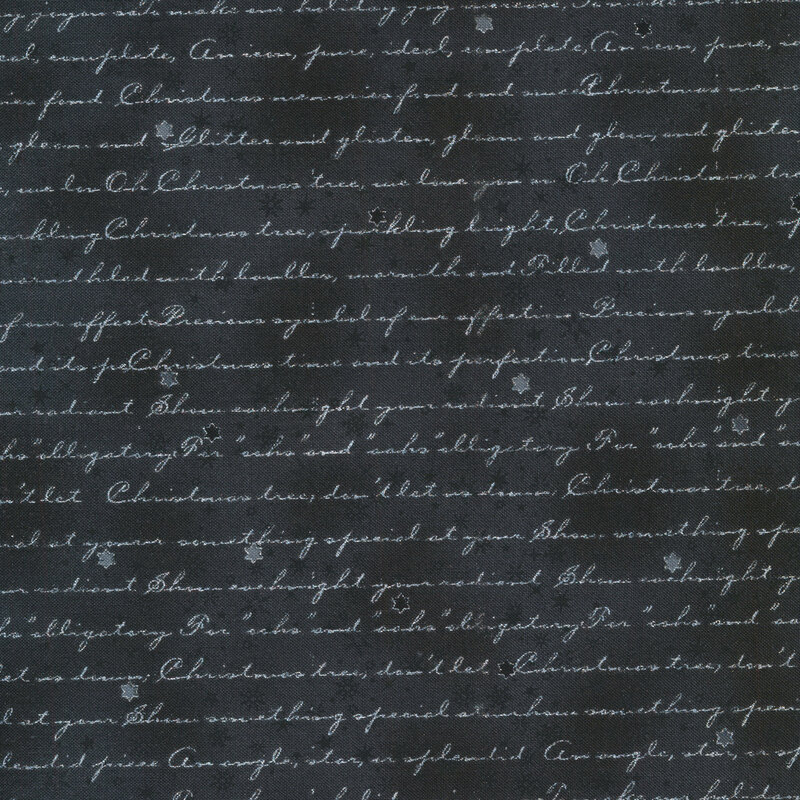 joyous to make our holiday joy increase. To make our
eal, complete, An icon, pure, ideal, complete, An icon, pure,
ies fond Christmas memories fond and Christmas memo
gleam and Glitter and glisten, gleam and glow, and glisten
we lov Oh Christmas tree, we love you so Oh Christmas tre
rkling Christmas tree, sparkling bright, Christmas tree, sp
warmth and with baubles, warmth and Filled with baubles,
of our affect Precious symbol of our affection Precious symbol
nd its pe Christmas time and its perfection Christmas time
ur radiant Show each night your radiant Show each night y
hs" obligatory For "oohs" and "aahs" obligatory For "oohs" and "a
n't let Christmas tree, don't let us down, Christmas tree, d
ial at your something special at your Show something spe
ur radiant Show each night your radiant Show each night y
hs" obligatory For "oohs" and "aahs" obligatory For "oohs" and "aa
et us down, Christmas tree, don't let Christmas tree, don't
l at your Show something special show something special
lendid piece An angle, star, or splendid An angle, star, or sp
To make our holiday